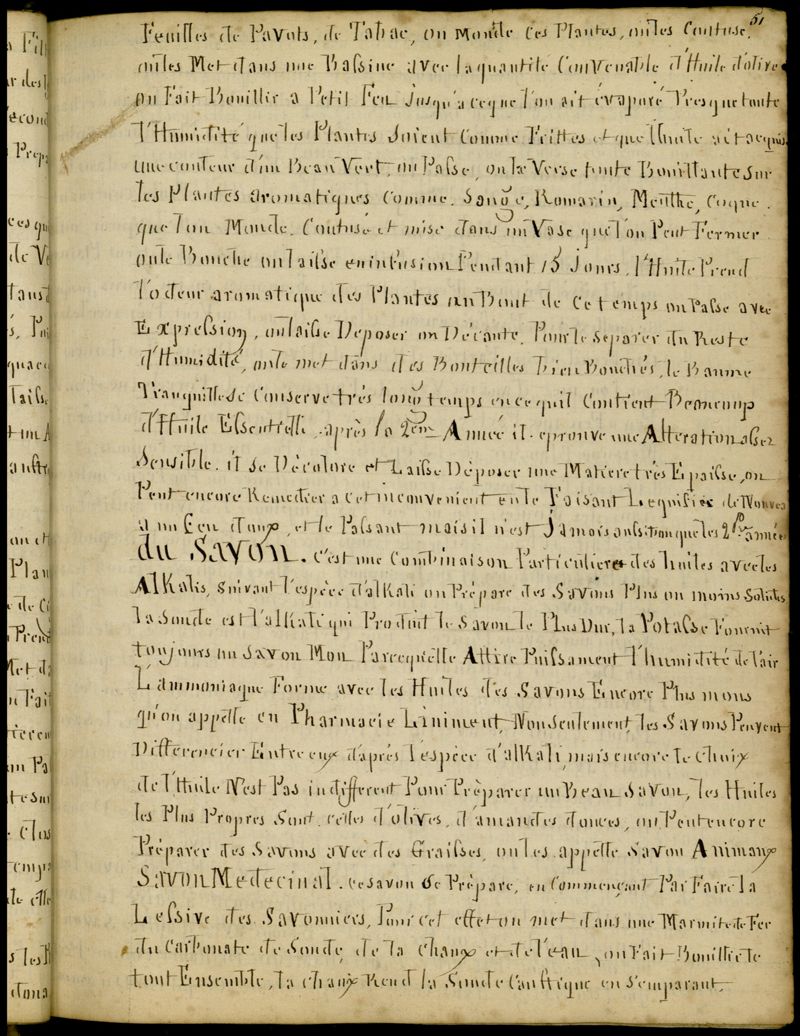 51
Feuilles de Pavots, de Tabac, on Monde ces Plantes, on les Contuse,
on les Met dans une Bassine avec la quantité Convenable d'Huile d'olive
on Fait Bouillir a Petit Feu Jusqu'a ceque l'on ait évaporé Presque toute
l'Humidité que les Plantes Soient Comme Frittes et que l'huile ait acquis
une couleur d'un Beau Vert, on Passe, on la Verse toute Bouillante Sur
les Plantes aromatiques Comme. Sauge, Romarin, Menthe, Coque.
que l'on Monde. Contusé et mise dans un Vase que l'on Peut Fermer
on le Bouche on laisse en infusion Pendant 15 Jours, l'Huile Prend
l'odeur aromatique des Plantes au Bout de ce temps on Passe avec
Expression, on laisse Deposer on Décante, Pour le Separer du Reste
d'Humidité, on le met dans des Bouteilles bien Bouchés, le Baume
Tranquille se Conserve très long temps en ce quil Contient Beaucoup
d'Huile Essentielle après la 2em Année il eprouve une Alteration assez
Sensible. il se Décolore et Laisse Déposer une Matiere très Epaisse, on
Peut encore Remedier a cet inconvenient en le Faisant Lequifier de Nouveau
a un Feu doux, et le Passant mais il n'est Jamais aussi bon que les 2 Pres années
du SAVON. C'est une Combinaison Particuliere des huiles avec les
Alkalis, Suivant l'espèce d'alkali on Prépare des Savons Plus ou moins Solides
la Soude est l'alkali qui Produit le Savon le Plus Dur, la Potasse Fournit
toujours un Savon Mou Parcequ'elle Attire Puissament l'humidité de l'air
L'ammoniaque Forme avec les Huiles des Savons Encore Plus mous
qu'on appelle en Pharmacie Liniment, Nonseulement, les Savons Peuvent
Differencier Entre eux d'aprés l'espèce d'alkali, mais encore le Choix
de l'Huile N'est Pas indifferent Pour Préparer un Beau Savon, les Huiles
les Plus Propres Sont celles d'olives, d'amandes douces, on Peut encore
Préparer des Savons avec des Graisses, on les appelle Savon Animaux
SAVON Medecinal. Ce Savon se Prépare, en Commençant Par Faire la
Lessive des Savonniers, Pour cet effet on met dans une Marmite de Fer
du Carbonate de Soude, de la Chaux et de l'eau, on Fait Bouillir le
tout Ensemble, la chaux Rend la Soude Caustique en s'emparant